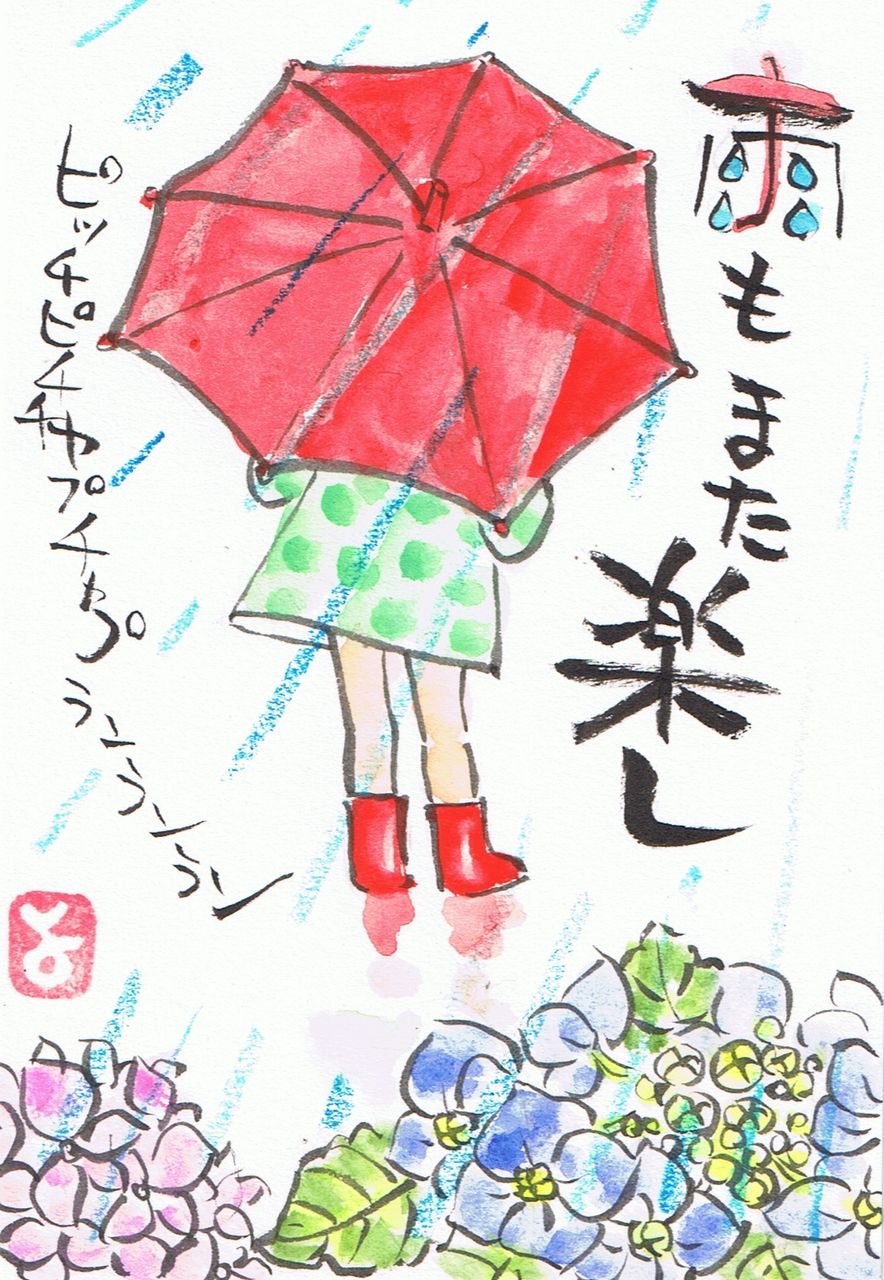 雨もまた楽し
ピッチピチチャプチャプランランラン
よ